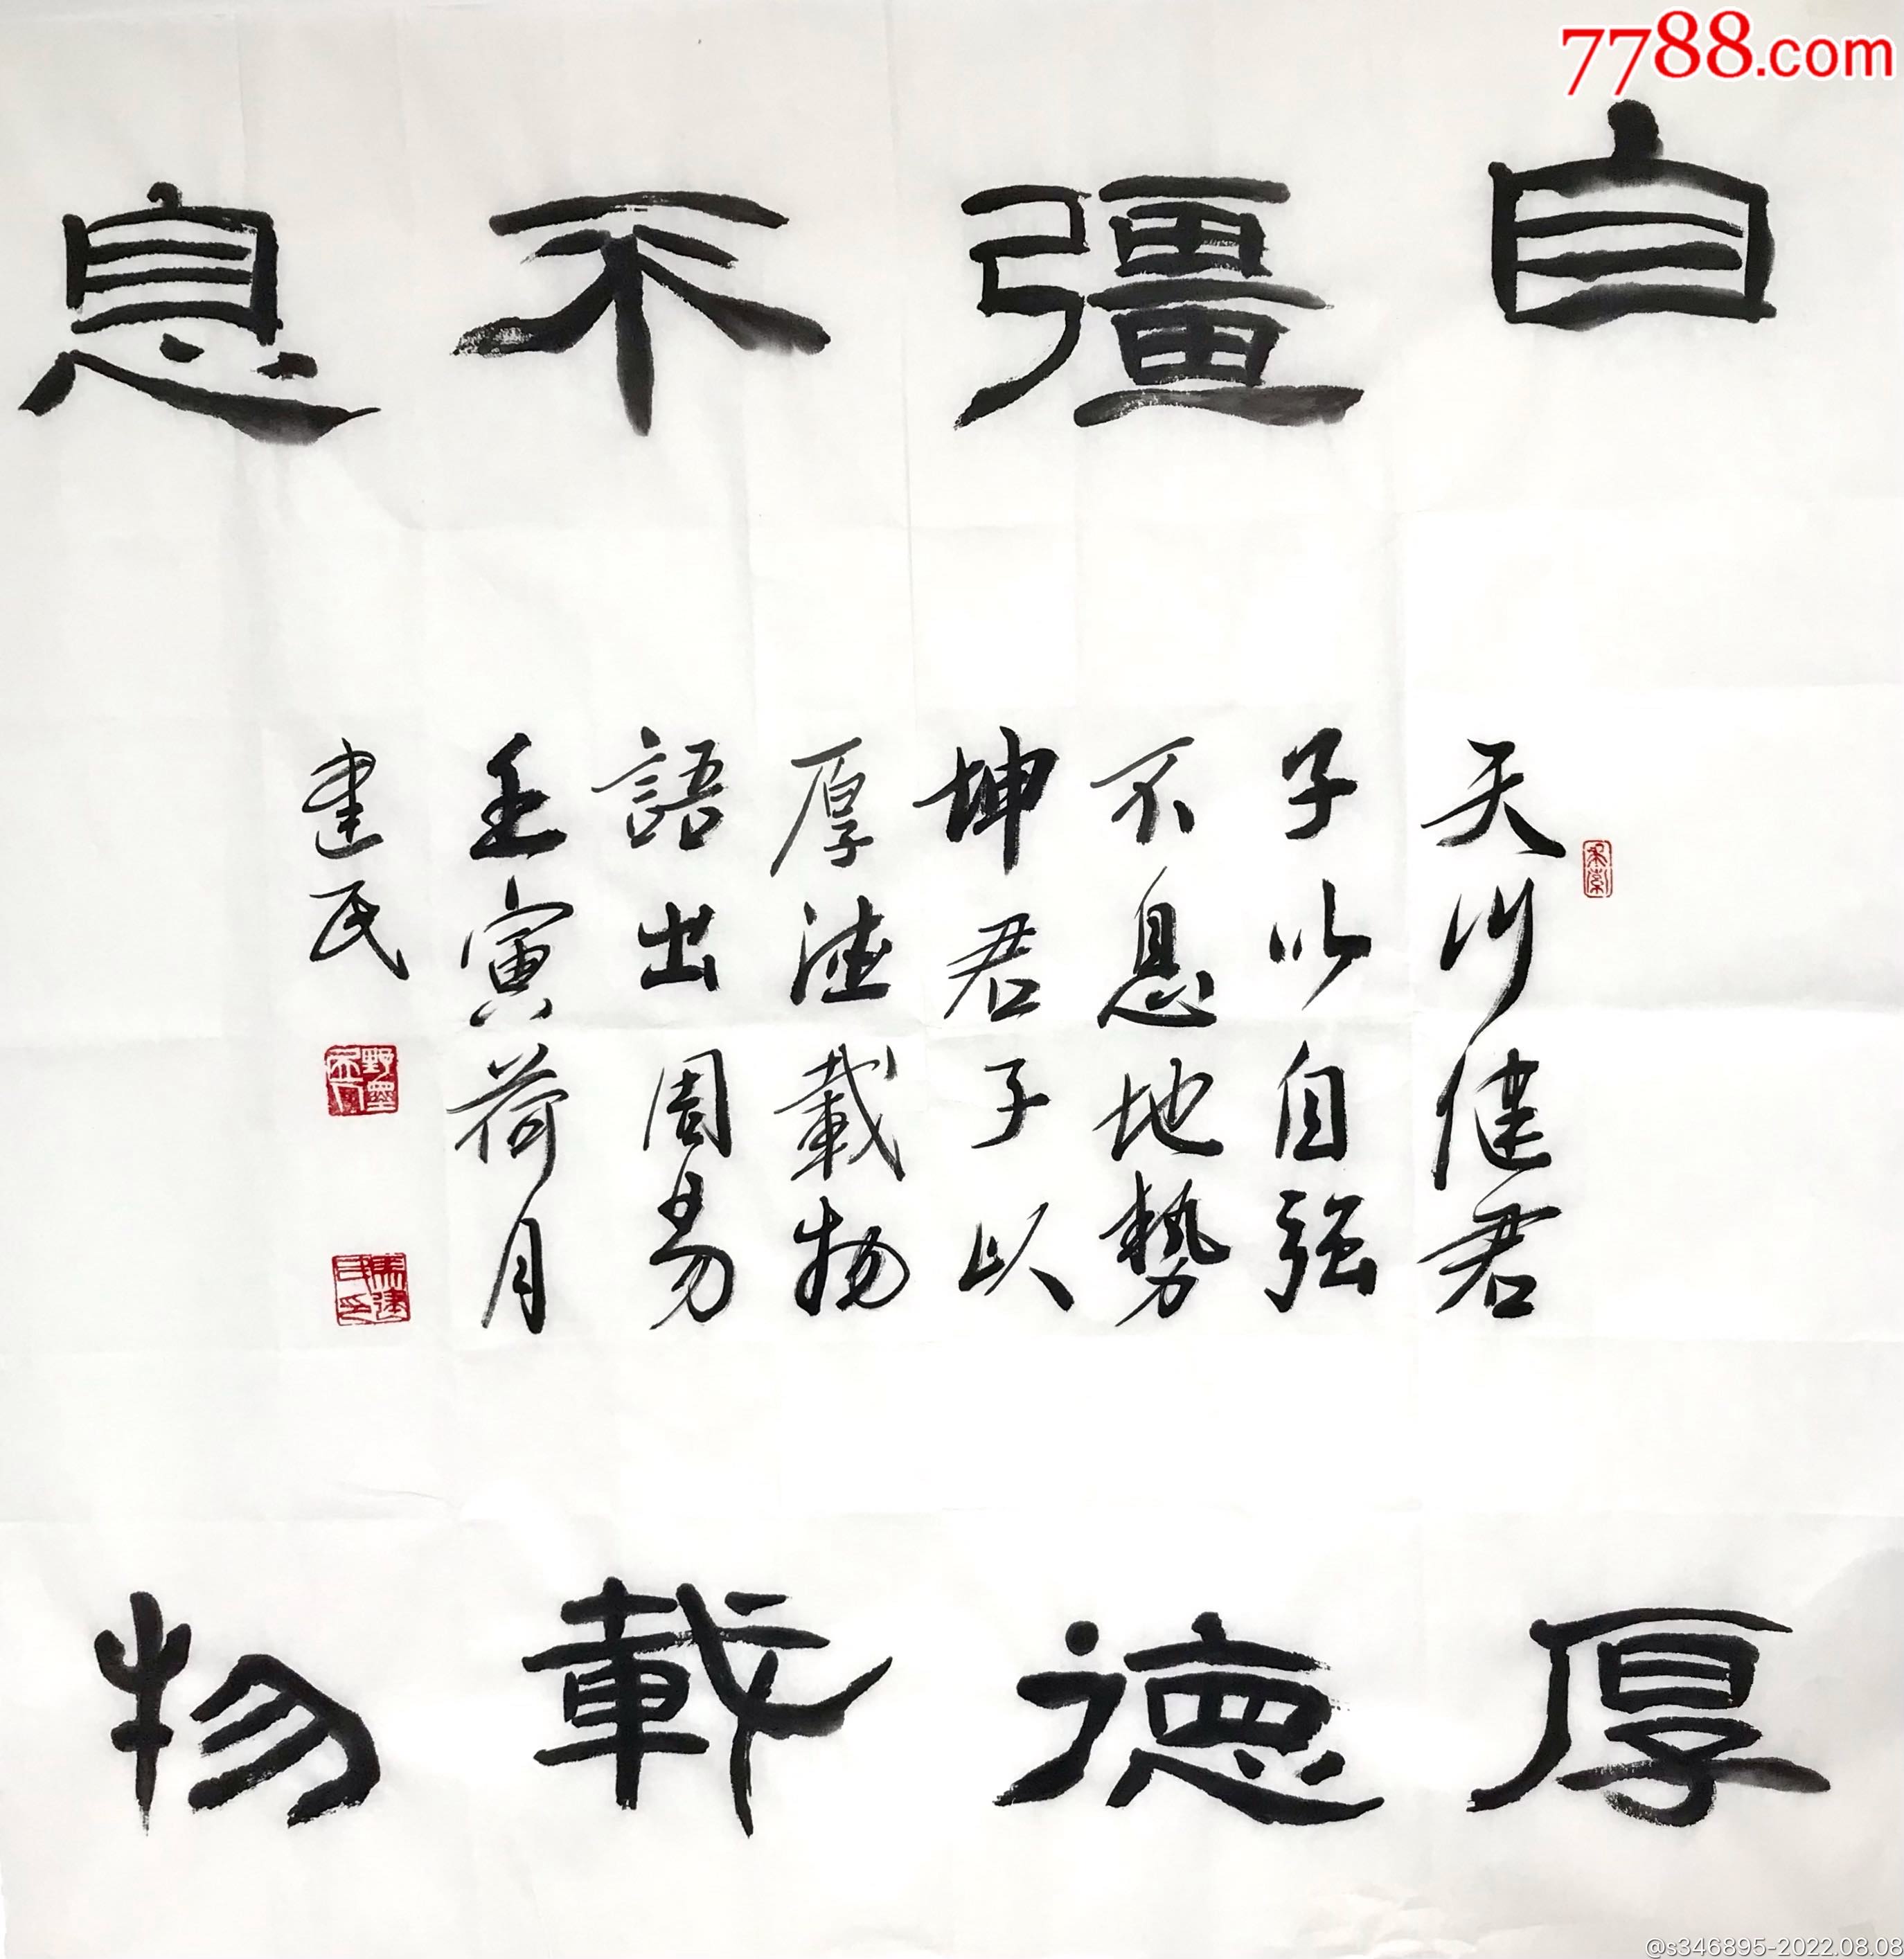 7788.com
自彊不息
天行健君
子以自強
不息地势
坤君子以
厚德載物
語出周易
壬寅荷月
建民
厚德載物
@s346895-2022.08.08